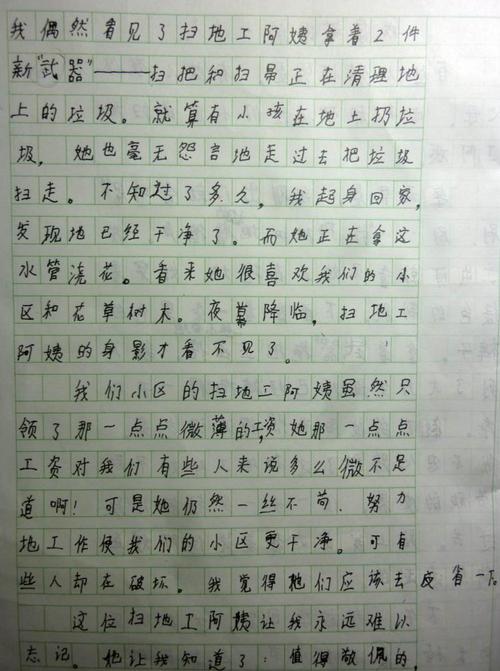 我偶然看见了扫地工阿姨拿着2件
新"武器"——扫把和扫帚正在清理地
上的垃圾。就算有小孩在地上扔垃
圾,她也毫无怨言地走过去把垃圾
扫走。不知过了多久,我起身回家,
发现地已经干净了。而她正在拿这
水管浇花。看来她很喜欢我们的小
区和花草树木。夜幕降临,扫地工
阿姨的身影才看不见了。
我们小区的扫地工阿姨虽然只
领了那一点点微薄的工资,她那一点点
工资对我们有些人来说多么微不足
道啊!可是她仍然一丝不苟,努力
地工作使我们的小区更干净。可有
些人却在破坏。我觉得他们应该去反省一下。
这位扫地工阿姨让我永远难以
忘记。她让我知道了:值得敬佩的,